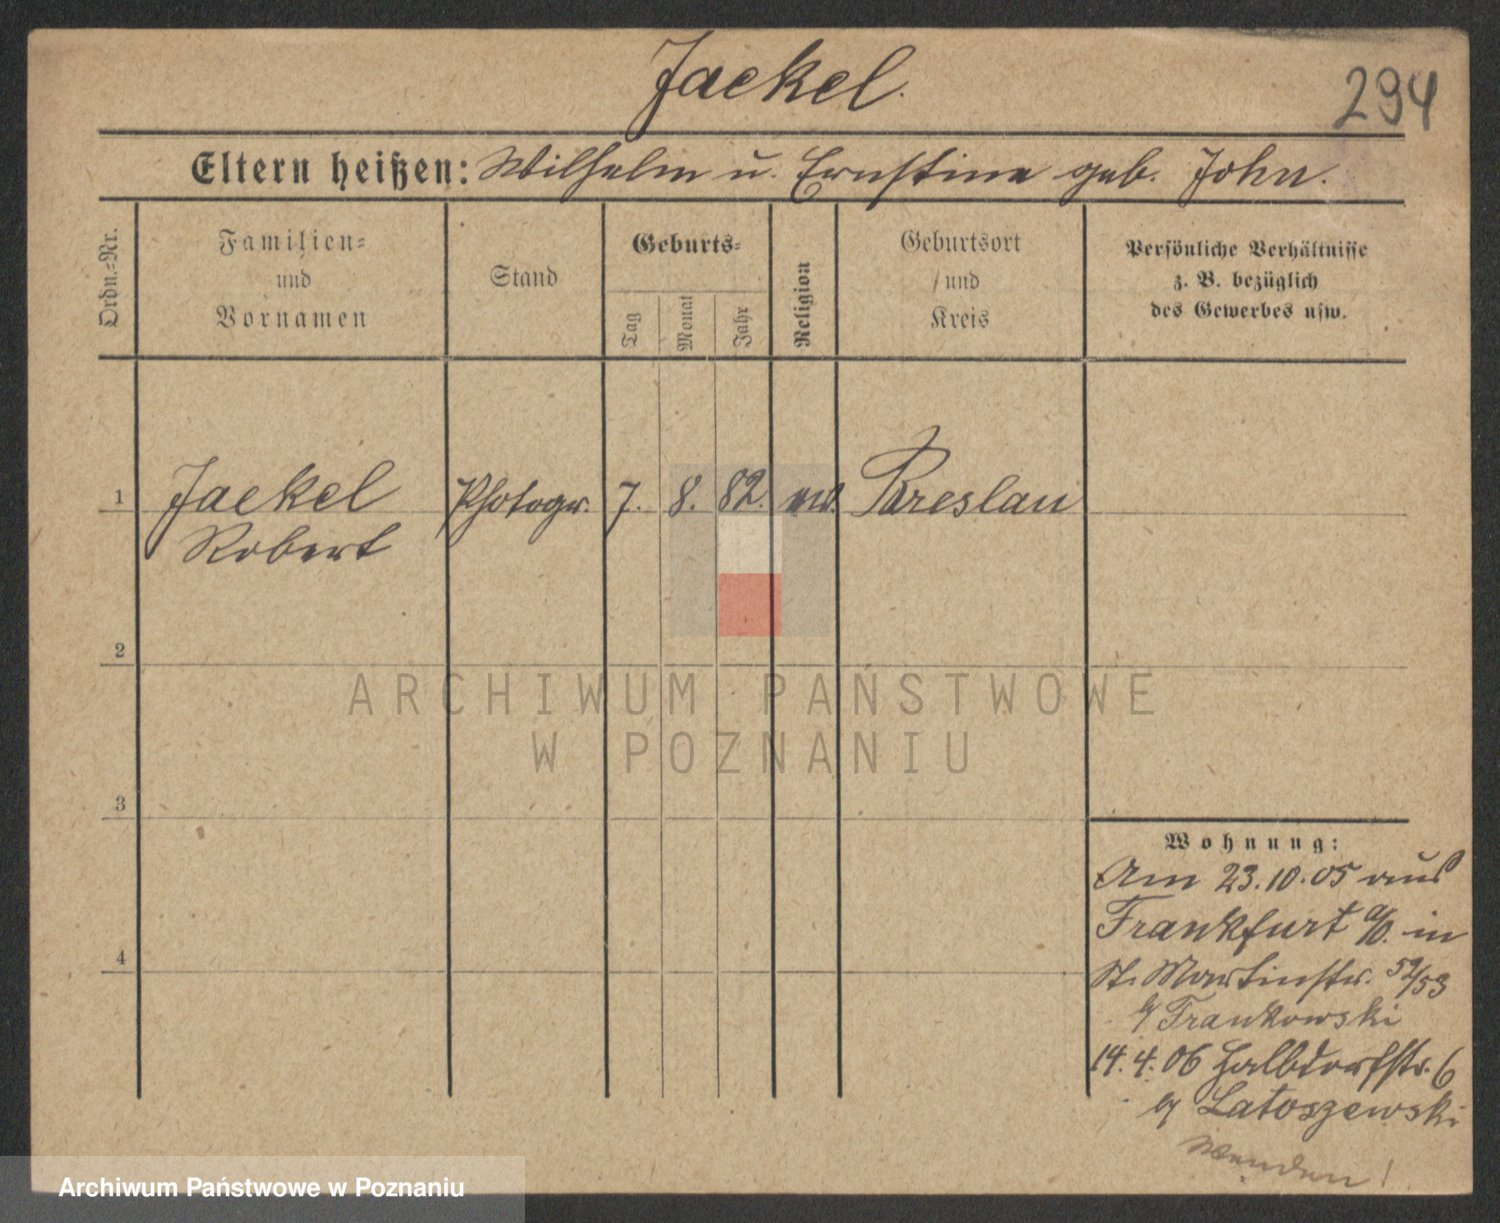 Jaekel.
294
Eltern heißen: Wilhelm u. Ernstine geb. John.
Ordn.-Nr.
Familien-
und
Vornamen
Stand
Geburts-
Tag
Monat
Jahr
Religion
Geburtsort
und
Kreis
Persönliche Verhältnisse
z. B. bezüglich
des Gewerbes usw.
1 Jaekel Photogr. 7. 8. 82. ev. Breslau
Robert
2
3
4
Wohnung:
Am 23.10.05 aus
Frankfurt a/O. in
St. Martinstr. 52/53
b/ Frankowski
14.4.06 Halbdorfstr. 6
b/ Latoszewski
Wenden!
ARCHIWUM PAŃSTWOWE
W POZNANIU
Archiwum Państwowe w Poznaniu